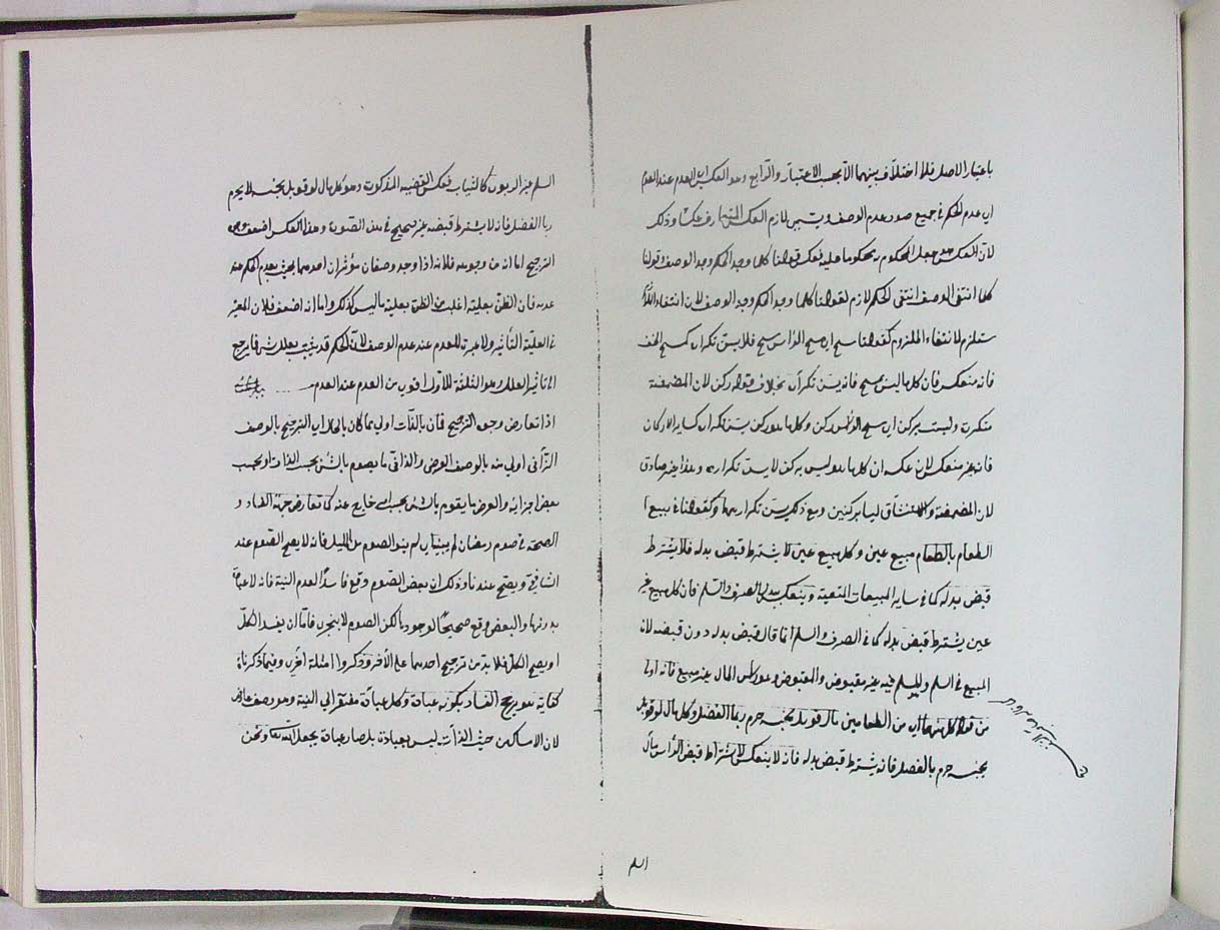 باعتبار الاصل فلا اختلاف بينهما الا بحسب الاعتبار والرابع وهو العكس اى العدم عند العدم
اى عدم الحكم فى جميع صور عدم الوصف ويسمى لازم العكس المتعارف عكسا وذلك
لان العكس جعل المحكوم به محكوما عليه فعكس قولنا كلما وجد الحكم وجد الوصف وقولنا
كلما انتفى الوصف انتفى الحكم لازم لقولنا كلما وجد الحكم وجد الوصف لان انتفاء اللازم
مستلزم لانتفاء الملزوم كقولنا مسح اى مسح الراس مسح فلا يسن تكراره كمسح الخف
فانه منعكس فان كل ما ليس مسح فانه يسن تكراره بخلاف قوله ركن لان المضمضة
متكررة وليست بركن اى مسح الراس ركن وكل ما هو ركن يسن تكراره كساير الاركان
فانه غير منعكس لان عكسه ان كل ما هو ليس بركن لا يسن تكراره وهذا غير صادق
لان المضمضة والاستنشاق ليسا بركنين ومع ذلك يسن تكرارهما وكقولنا فى بيع ا
الطعام بالطعام مبيع عين وكل مبيع عين لا يشترط قبض بدله فلا يشترط
قبض بدله كما فى ساير المبيعات المتعينة وينعكس ببدل الصرف والسلم فان كل مبيع غير
عين يشترط قبض بدله كما فى الصرف والسلم انما قال قبض بدله دون قبضه لان
المبيع فى السلم والمسلم فيه غير مقبوض والمقبوض وهو راس المال غير مبيع فانه اولى
من قوله كل منهما اى من الطعامين مال قوبل بجنسه حرم ربا الفضل وكل مال لو قوبل
بجنسه حرم بالفضل فانه يشترط قبض بدله فانه لا ينعكس لاشتراط قبض الراس مال
السلم
السلم غير الربوى كالثياب فعكس القضية المذكورة وهو كل مال لو قوبل بجنسه لا يحرم
ربا الفضل فانه لا يشترط قبضه غير صحيح فى هذه الصورة وهذا العكس اضعف وجوه
الترجيح اما انه من وجوهه فلانه اذا وجد وصفان مؤثران احدهما بحيث يعدم الحكم عند
عدمه فان الظن بعليته اغلب من الظن بعلية ما ليس كذلك واما انه اضعف فلان المعتبر
فى العلية التأثير ولا عبرة للعدم عند عدم الوصف لان الحكم قد يثبت بعلل شتى فما يرجع
الى تاثير العلل وهو الثلثة الاول اقوى من العدم عند العدم
اذا تعارض وجوه الترجيح فما كان بالذات اولى مما كان بالحال اى الترجيح بالوصف
الذاتى اولى منه بالوصف العرضى والذاتى ما يقوم بالشئ بحسب الذات او بحسب
بعض اجزائه والعرضى ما يقوم بالشئ بحسب امر خارج عنه كما تعارض جهة الفساد و
الصحة فى صوم رمضان لم يبيت اى لم ينو الصوم من الليل فانه لا يصح الصوم عند
الشافعى ويصح عندنا وذلك ان بعض الصوم وقع فاسدا لعدم النية فانه لا عبادة
بدونها والبعض وقع صحيحا لوجودها لكن الصوم لا يتجزى فاما ان يفسد الكل
او يصح الكل فلا بد من ترجيح احدهما على الآخر وذكروا امثلة اخرى وفيما ذكرناه
كفاية هو يرجح الفساد بكونه عبادة وكل عبادة مفتقر الى النية وهو وصف عارض
لان الامساك من حيث الذات ليس بعبادة بل صار عبادة بجعل الله تعالى ونحن